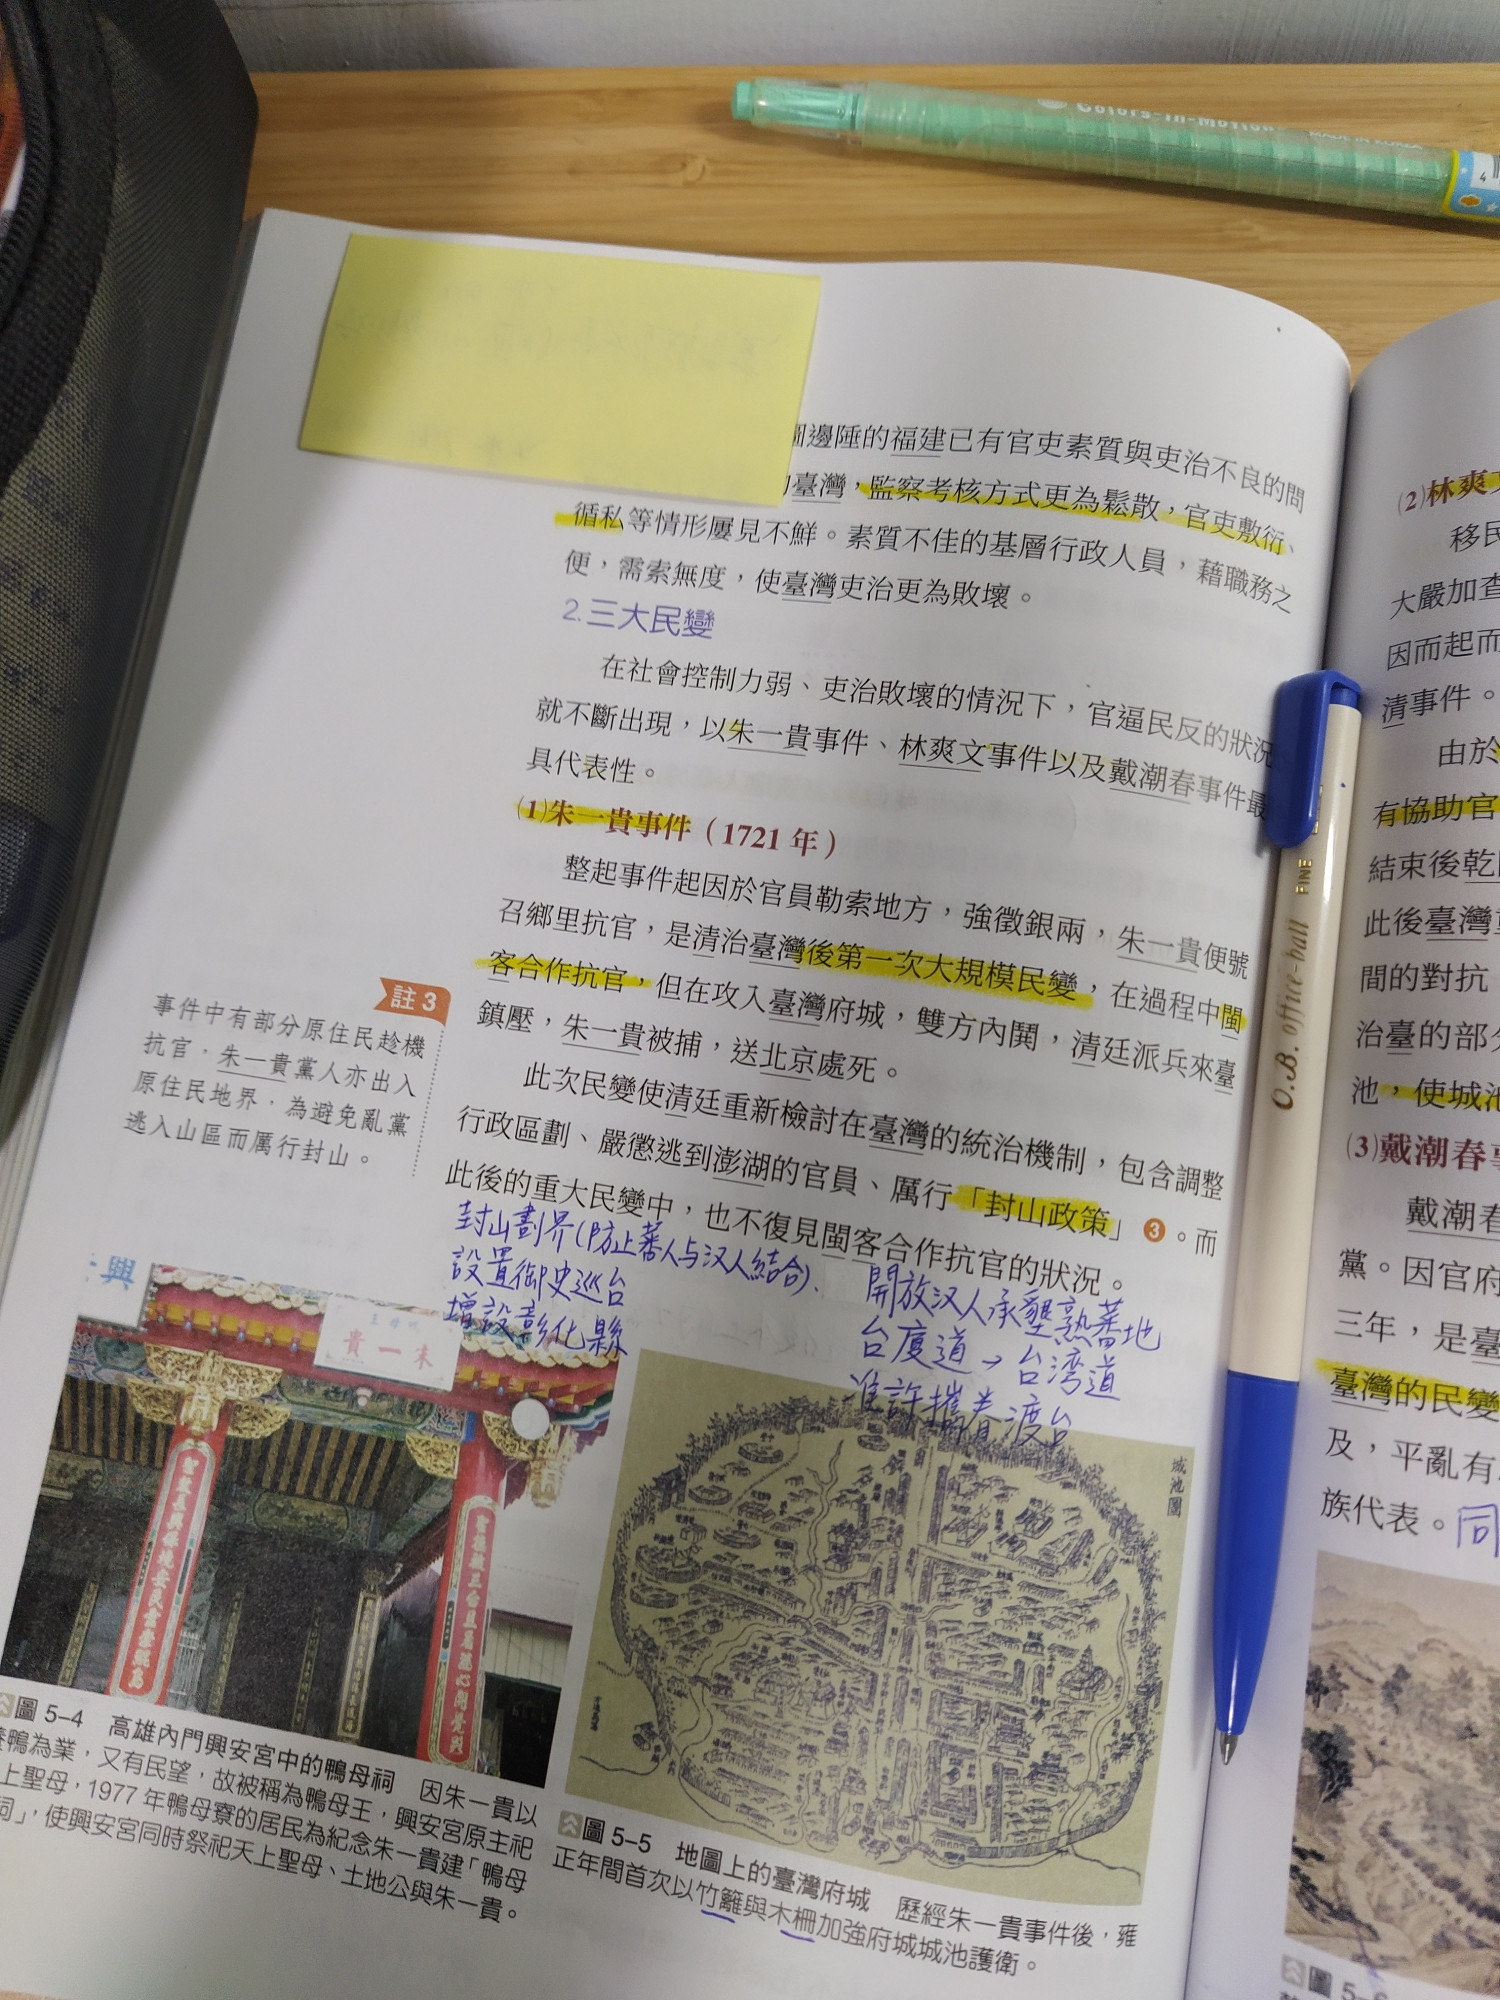 Colors-in-Motion
MADE IN KOREA
4
邊陲的福建已有官吏素質與吏治不良的問
臺灣，監察考核方式更為鬆散，官吏敷衍、
循私等情形屢見不鮮。素質不佳的基層行政人員，藉職務之
便，需索無度，使臺灣吏治更為敗壞。
2.三大民變
在社會控制力弱、吏治敗壞的情況下，官逼民反的狀況
就不斷出現，以朱一貴事件、林爽文事件以及戴潮春事件最
具代表性。
(1)朱一貴事件（1721 年）
整起事件起因於官員勒索地方，強徵銀兩，朱一貴便號
召鄉里抗官，是清治臺灣後第一次大規模民變，在過程中閩
客合作抗官，但在攻入臺灣府城，雙方內鬨，清廷派兵來臺
鎮壓，朱一貴被捕，送北京處死。
此次民變使清廷重新檢討在臺灣的統治機制，包含調整
行政區劃、嚴懲逃到澎湖的官員、厲行「封山政策」3。而
此後的重大民變中，也不復見閩客合作抗官的狀況。
註 3
事件中有部分原住民趁機
抗官，朱一貴黨人亦出入
原住民地界，為避免亂黨
逃入山區而厲行封山。
封山劃界(防止蕃人与汉人結合)、
設置御史巡台
增設彰化縣
開放汉人承墾熟蕃地
台廈道→台湾道
准許攜眷渡台
興
貴一朱
城池圖
圖 5-4 高雄內門興安宮中的鴨母祠 因朱一貴以
鴨為業，又有民望，故被稱為鴨母王，興安宮原主祀
上聖母，1977 年鴨母寮的居民為紀念朱一貴建「鴨母
祠」，使興安宮同時祭祀天上聖母、土地公與朱一貴。
圖 5-5 地圖上的臺灣府城 歷經朱一貴事件後，雍
正年間首次以竹籬與木柵加強府城城池護衛。
O.B. office-ball FINE
(2)林爽
移民
大嚴加查
因而起而
清事件。
由於
有協助官
結束後乾
此後臺灣
間的對抗
治臺的部分
池，使城池
(3)戴潮春事
戴潮春
黨。因官府
三年，是臺
臺灣的民變
及，平亂有
族代表。同
圖 5-6